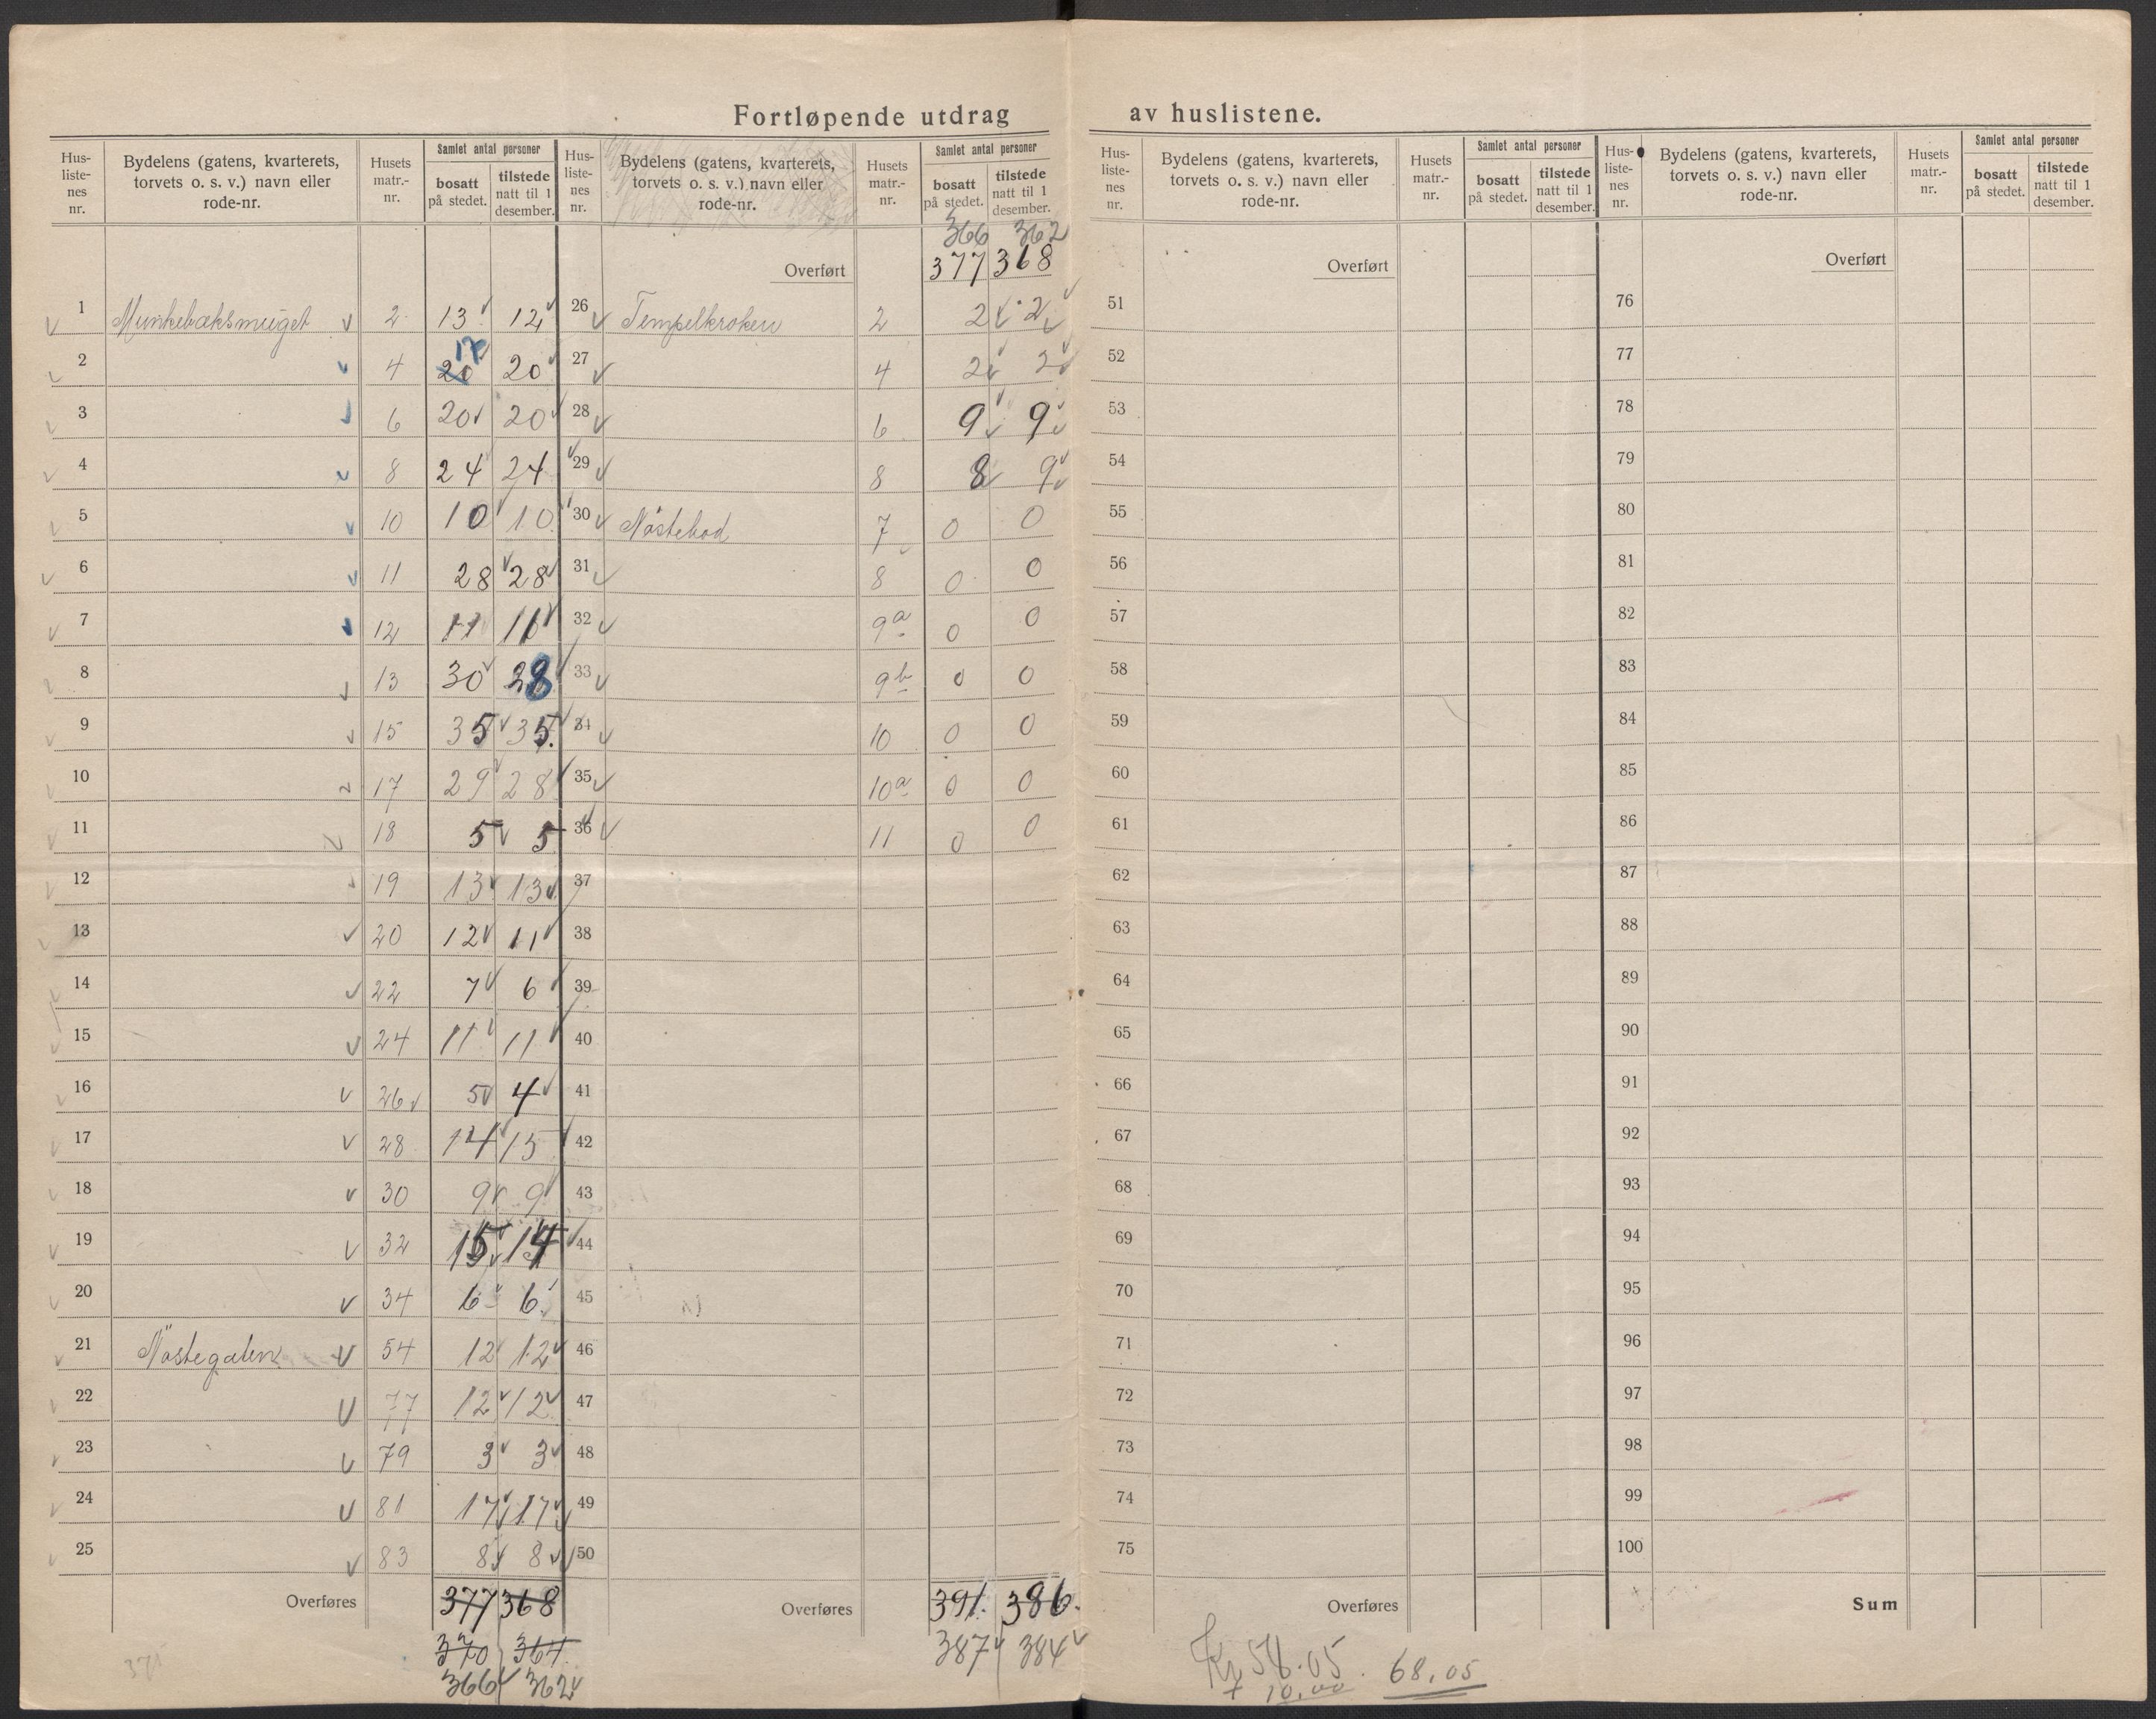 Fortløpende utdrag av huslistene.
Hus-liste-nes nr. Bydelens (gatens, kvarterets, torvets o. s. v.) navn eller rode-nr. Husets matr.-nr. Samlet antal personer bosatt på stedet. tilstede natt til 1 desember.
1 Munkebæksmuget 2 13 12
2 4 20 17 20
3 6 20 20
4 8 24 24
5 10 10 10
6 11 28 28
7 12 11 10
8 13 30 28
9 15 35 35
10 17 29 28
11 18 5 5
12 19 13 13
13 20 12 11
14 22 7 6
15 24 11 11
16 26 5 4
17 28 14 15
18 30 9 9
19 32 15 14
20 34 6 6
21 Nöstegaten 54 12 12
22 77 12 12
23 79 3 3
24 81 17 17
25 83 8 8
Overføres 377 368
370 364
366 362
Hus-liste-nes nr. Bydelens (gatens, kvarterets, torvets o. s. v.) navn eller rode-nr. Husets matr.-nr. Samlet antal personer bosatt på stedet. tilstede natt til 1 desember.
366 362
Overført 377 368
26 Tempelkroken 2 2 2
27 4 2 2
28 6 9 9
29 8 8 9
30 Nöstebod 7 0 0
31 8 0 0
32 9a 0 0
33 9b 0 0
34 10 0 0
35 10a 0 0
36 11 0 0
37
38
39
40
41
42
43
44
45
46
47
48
49
50
Overføres 391. 386.
387 384
Hus-liste-nes nr. Bydelens (gatens, kvarterets, torvets o. s. v.) navn eller rode-nr. Husets matr.-nr. Samlet antal personer bosatt på stedet. tilstede natt til 1 desember.
Overført
51
52
53
54
55
56
57
58
59
60
61
62
63
64
65
66
67
68
69
70
71
72
73
74
75
Overføres
Kr 58.05. 68,05
+ 10,00
Hus-liste-nes nr. Bydelens (gatens, kvarterets, torvets o. s. v.) navn eller rode-nr. Husets matr.-nr. Samlet antal personer bosatt på stedet. tilstede natt til 1 desember.
Overført
76
77
78
79
80
81
82
83
84
85
86
87
88
89
90
91
92
93
94
95
96
97
98
99
100
Sum